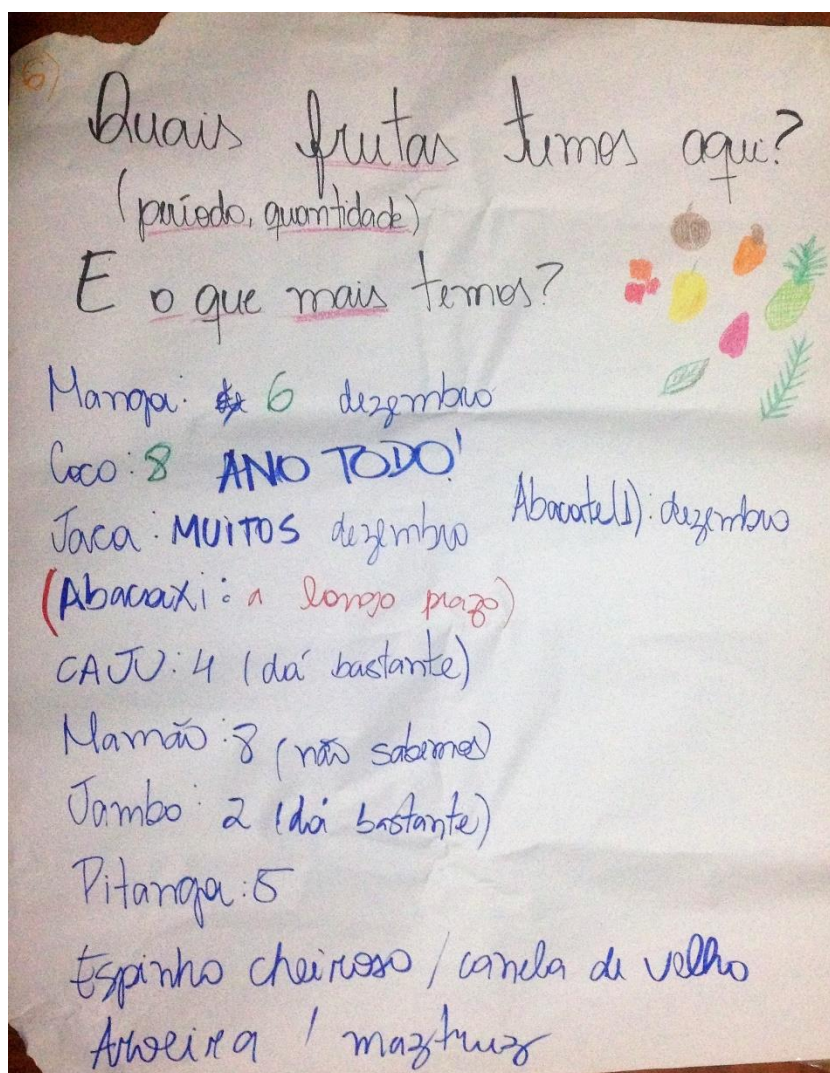 6)
Quais frutas temos aqui?
(período, quantidade)
E o que mais temos?
Manga: 6 dezembro
Coco: 8 ANO TODO!
Jaca: MUITOS dezembro
Abacate(1): dezembro
(Abacaxi: a longo prazo)
CAJU: 4 (dá bastante)
Mamão: 8 (não sabemos)
Jambo: 2 (dá bastante)
Pitanga: 5
Espinho cheiroso / canela de velho
Aroeira / maztruz